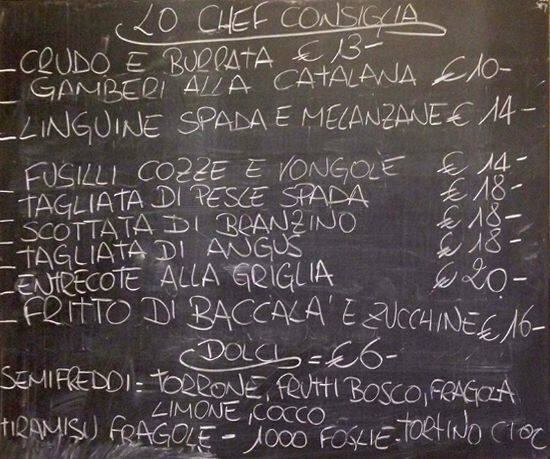 LO CHEF CONSIGLIA
- CRUDO E BURRATA € 13-
- GAMBERI ALLA CATALANA € 10-
- LINGUINE SPADA E MELANZANE € 14-
- FUSILLI COZZE E VONGOLE € 14-
- TAGLIATA DI PESCE SPADA € 18-
- SCOTTATA DI BRANZINO € 18-
- TAGLIATA DI ANGUS € 18-
- ENTRECOTE ALLA GRIGLIA € 20-
- FRITTO DI BACCALA' E ZUCCHINE € 16-
DOLCI = € 6-
SEMIFREDDI = TORRONE, FRUTTI BOSCO, FRAGOLA
LIMONE, COCCO
TIRAMISU FRAGOLE - 1000 FOGLIE - TORTINO CIOC